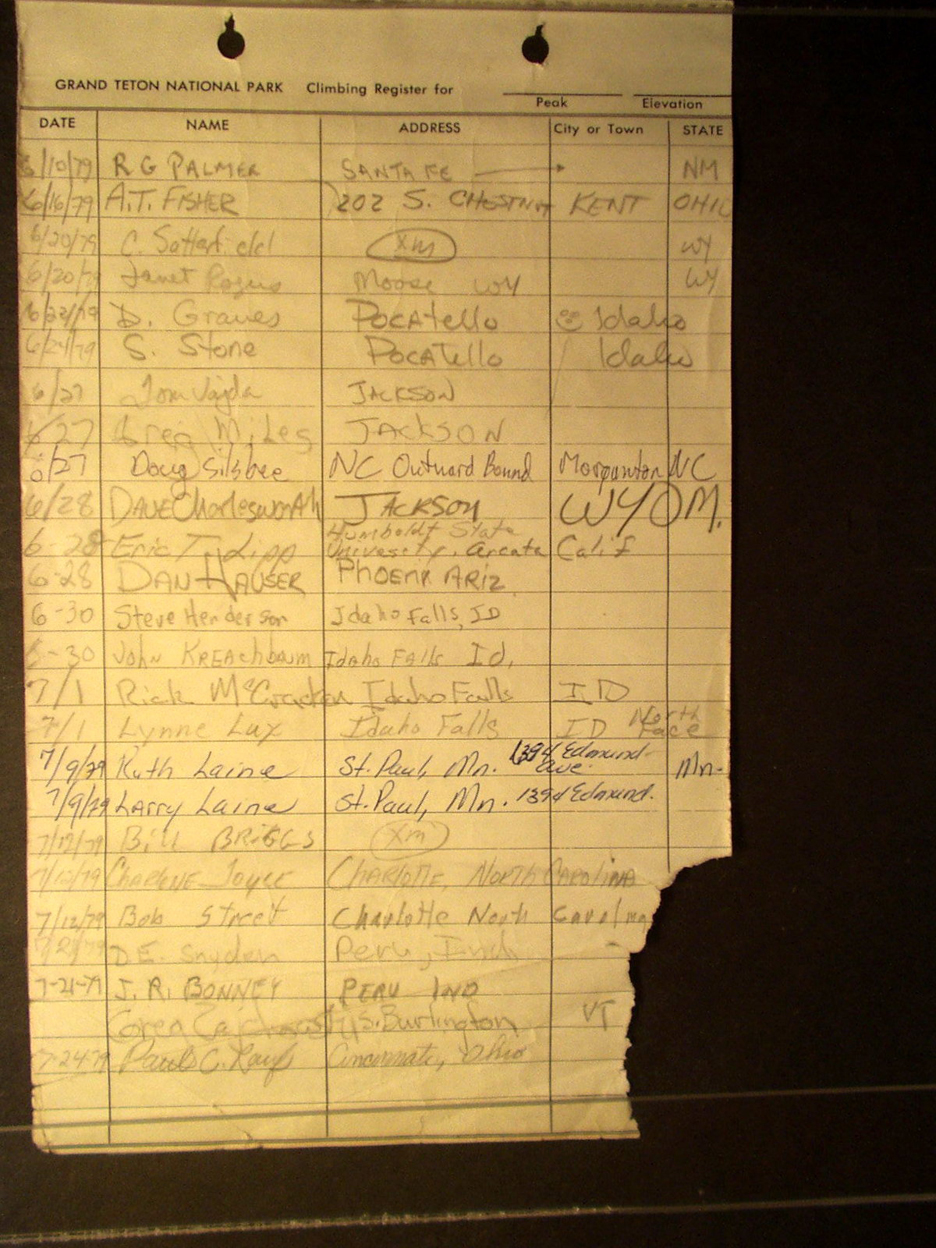 GRAND TETON NATIONAL PARK Climbing Register for
Peak Elevation
DATE NAME ADDRESS City or Town STATE
/10/79 R G PALMER SANTA FE NM
6/16/79 A.T. FISHER 202 S. CHESTNUT KENT OHIO
6/20/79 C. Satterfield Xm WY
6/20/79 Janet Moose WY WY
6/22/79 D. Graves POCATELLO Idaho
6/24/79 S. Stone POCATELLO Idaho
6/27 Tom Vajda JACKSON
6/27 Greg Miles JACKSON
6/27 Doug Silsbee NC Outward Bound Morganton NC
6/28 DAVE Charlesworth JACKSON WYOM.
6-28 Eric T. Lipp Humboldt State
University, Arcata Calif
6-28 DAN HAUSER PHOENX ARIZ.
6-30 Steve Henderson Idaho Falls, ID
6-30 JOHN KREACHBAUM Idaho FALLS Id.
7/1 Rick McCracken Idaho Falls ID
7/1 Lynne Lux Idaho Falls ID North Face
7/9/79 Ruth Laine St. Paul, Mn. 1394 Edmund Ave. Mn.
7/9/79 Larry Laine St. Paul, Mn. 1394 Edmund.
7/12/79 Bill BRIGGS Xm
7/12/79 CHARLENE Joyce CHARLOTTE, NORTH CAROLINA
7/12/79 Bob Street Charlotte North Carolina
7/21/79 D.E. Snyder Peru, Ind
7-21-79 J. R. BONNEY PERU IND
S. Burlington VT
7-24-79 Paul C. Cincinnati, Ohio